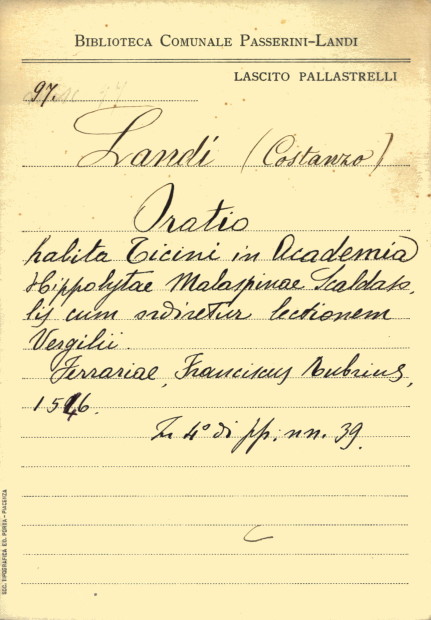 BIBLIOTECA COMUNALE PASSERINI-LANDI
LASCITO PALLASTRELLI
97.
Landi (Costanzo)
Oratio
habita Ticini in Academia
Hippolytae Malaspinae Scaldaso,
lis cum ordiretur lectionem
Vergilii.
Ferrariae, Franciscus Rubrius,
1546.
In 4° di pp. nn. 39.
SOC. TIPOGRAFICA ED. PORTA - PIACENZA